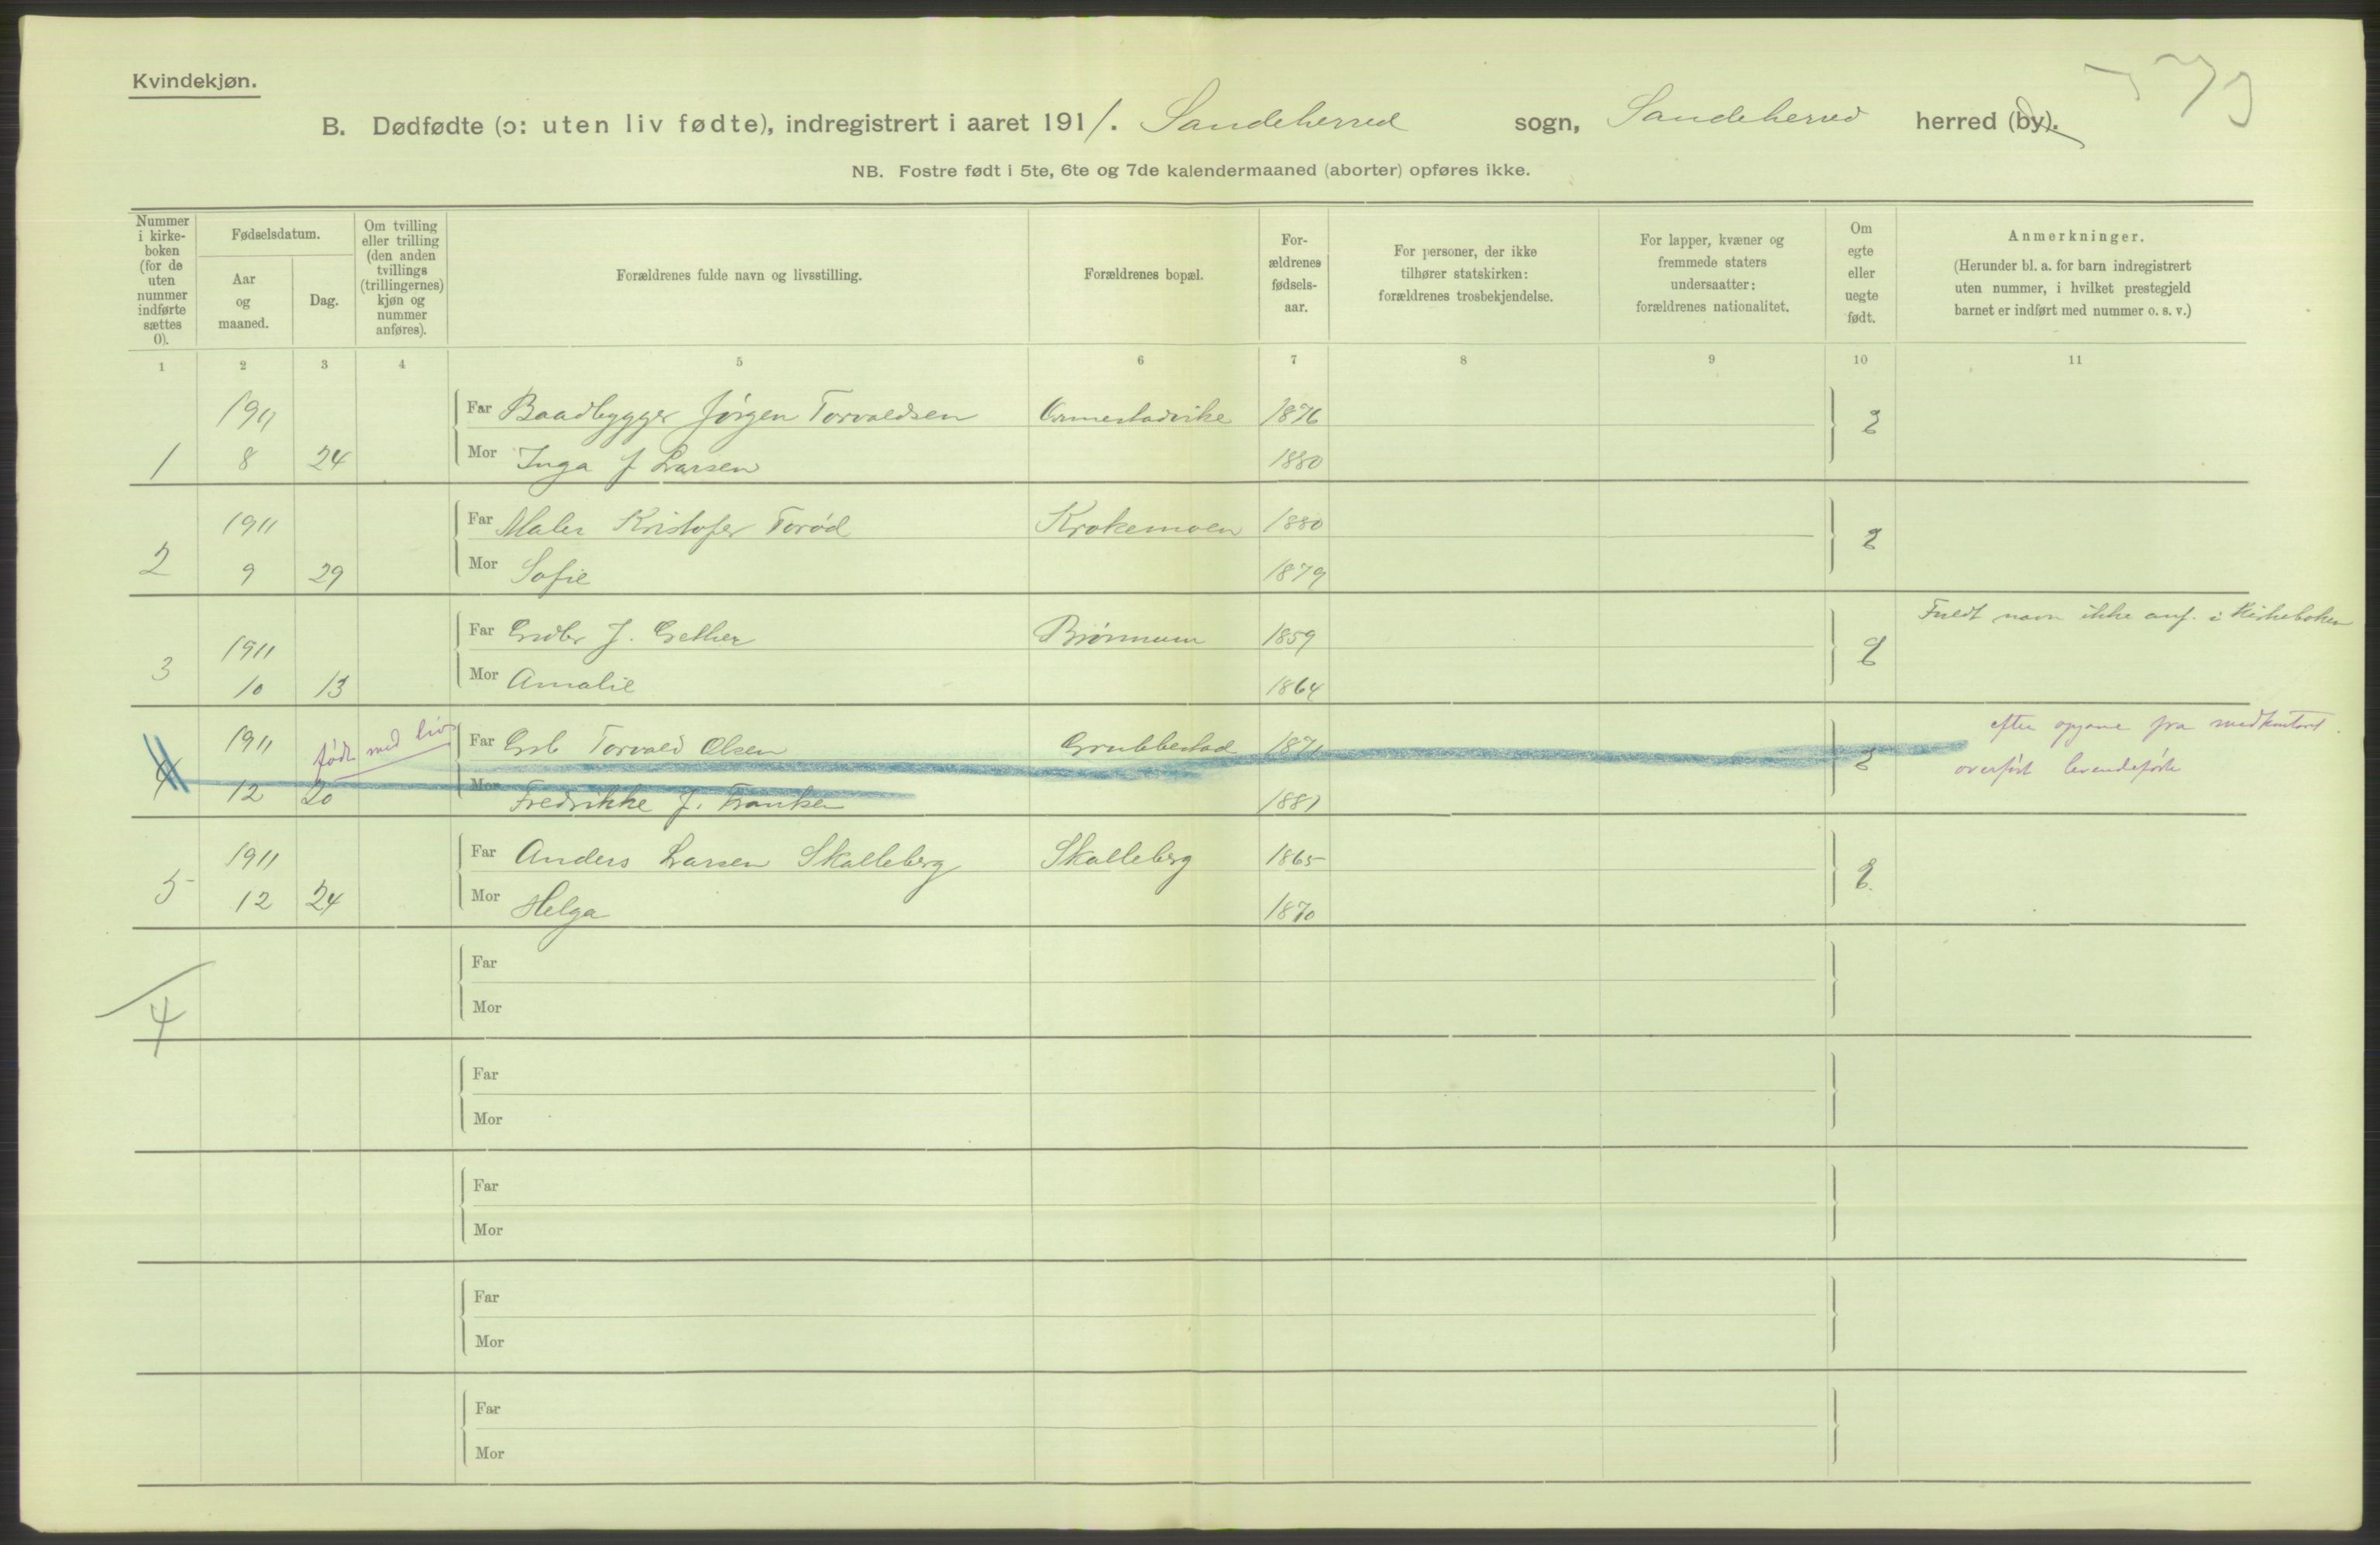 Kvindekjøn.
B. Dødfødte (ɔ: uten liv fødte), indregistrert i aaret 1911. Sandeherred sogn, Sandeherred herred (by).
NB. Fostre født i 5te, 6te og 7de kalendermaaned (aborter) opføres ikke.
Nummer i kirke-boken (for de uten nummer indførte sættes 0).
Fødselsdatum.
Aar og maaned.
Dag.
Om tvilling eller trilling (den anden tvillings (trillingernes) kjøn og nummer anføres).
Forældrenes fulde navn og livsstilling.
Forældrenes bopæl.
For-ældrenes fødsels-aar.
For personer, der ikke tilhører statskirken: forældrenes trosbekjendelse.
For lapper, kvæner og fremmede staters undersaatter: forældrenes nationalitet.
Om egte eller uegte født.
Anmerkninger.
(Herunder bl. a. for barn indregistrert uten nummer, i hvilket prestegjeld barnet er indført med nummer o. s. v.)
1 2 3 4 5 6 7 8 9 10 11
1911 Far Baadbygger Jørgen Torvaldsen Ormestadvike 1876
1 8 24 Mor Inga J Larsen 1880
1911 Far Maler Kristofer Torød Krokemoen 1880
2 9 29 Mor Sofie 1879
Fuldt navn ikke anf. i Kirkeboken
1911 Far Grdbr J. Gether 1859
3 10 13 Mor Amalie 1864
1911 født med liv Far Torvald Olsen Grubbestad 1871 efter opgave fra
4 12 20 Mor Fredrikke J. Franksen 1881 overført levendefødte
1911 Far Anders Larsen Skalleberg Skalleberg 1865
5 12 24 Mor Helga 1870
Far
4
Mor
Far
Mor
Far
Mor
Far
Mor
Far
Mor